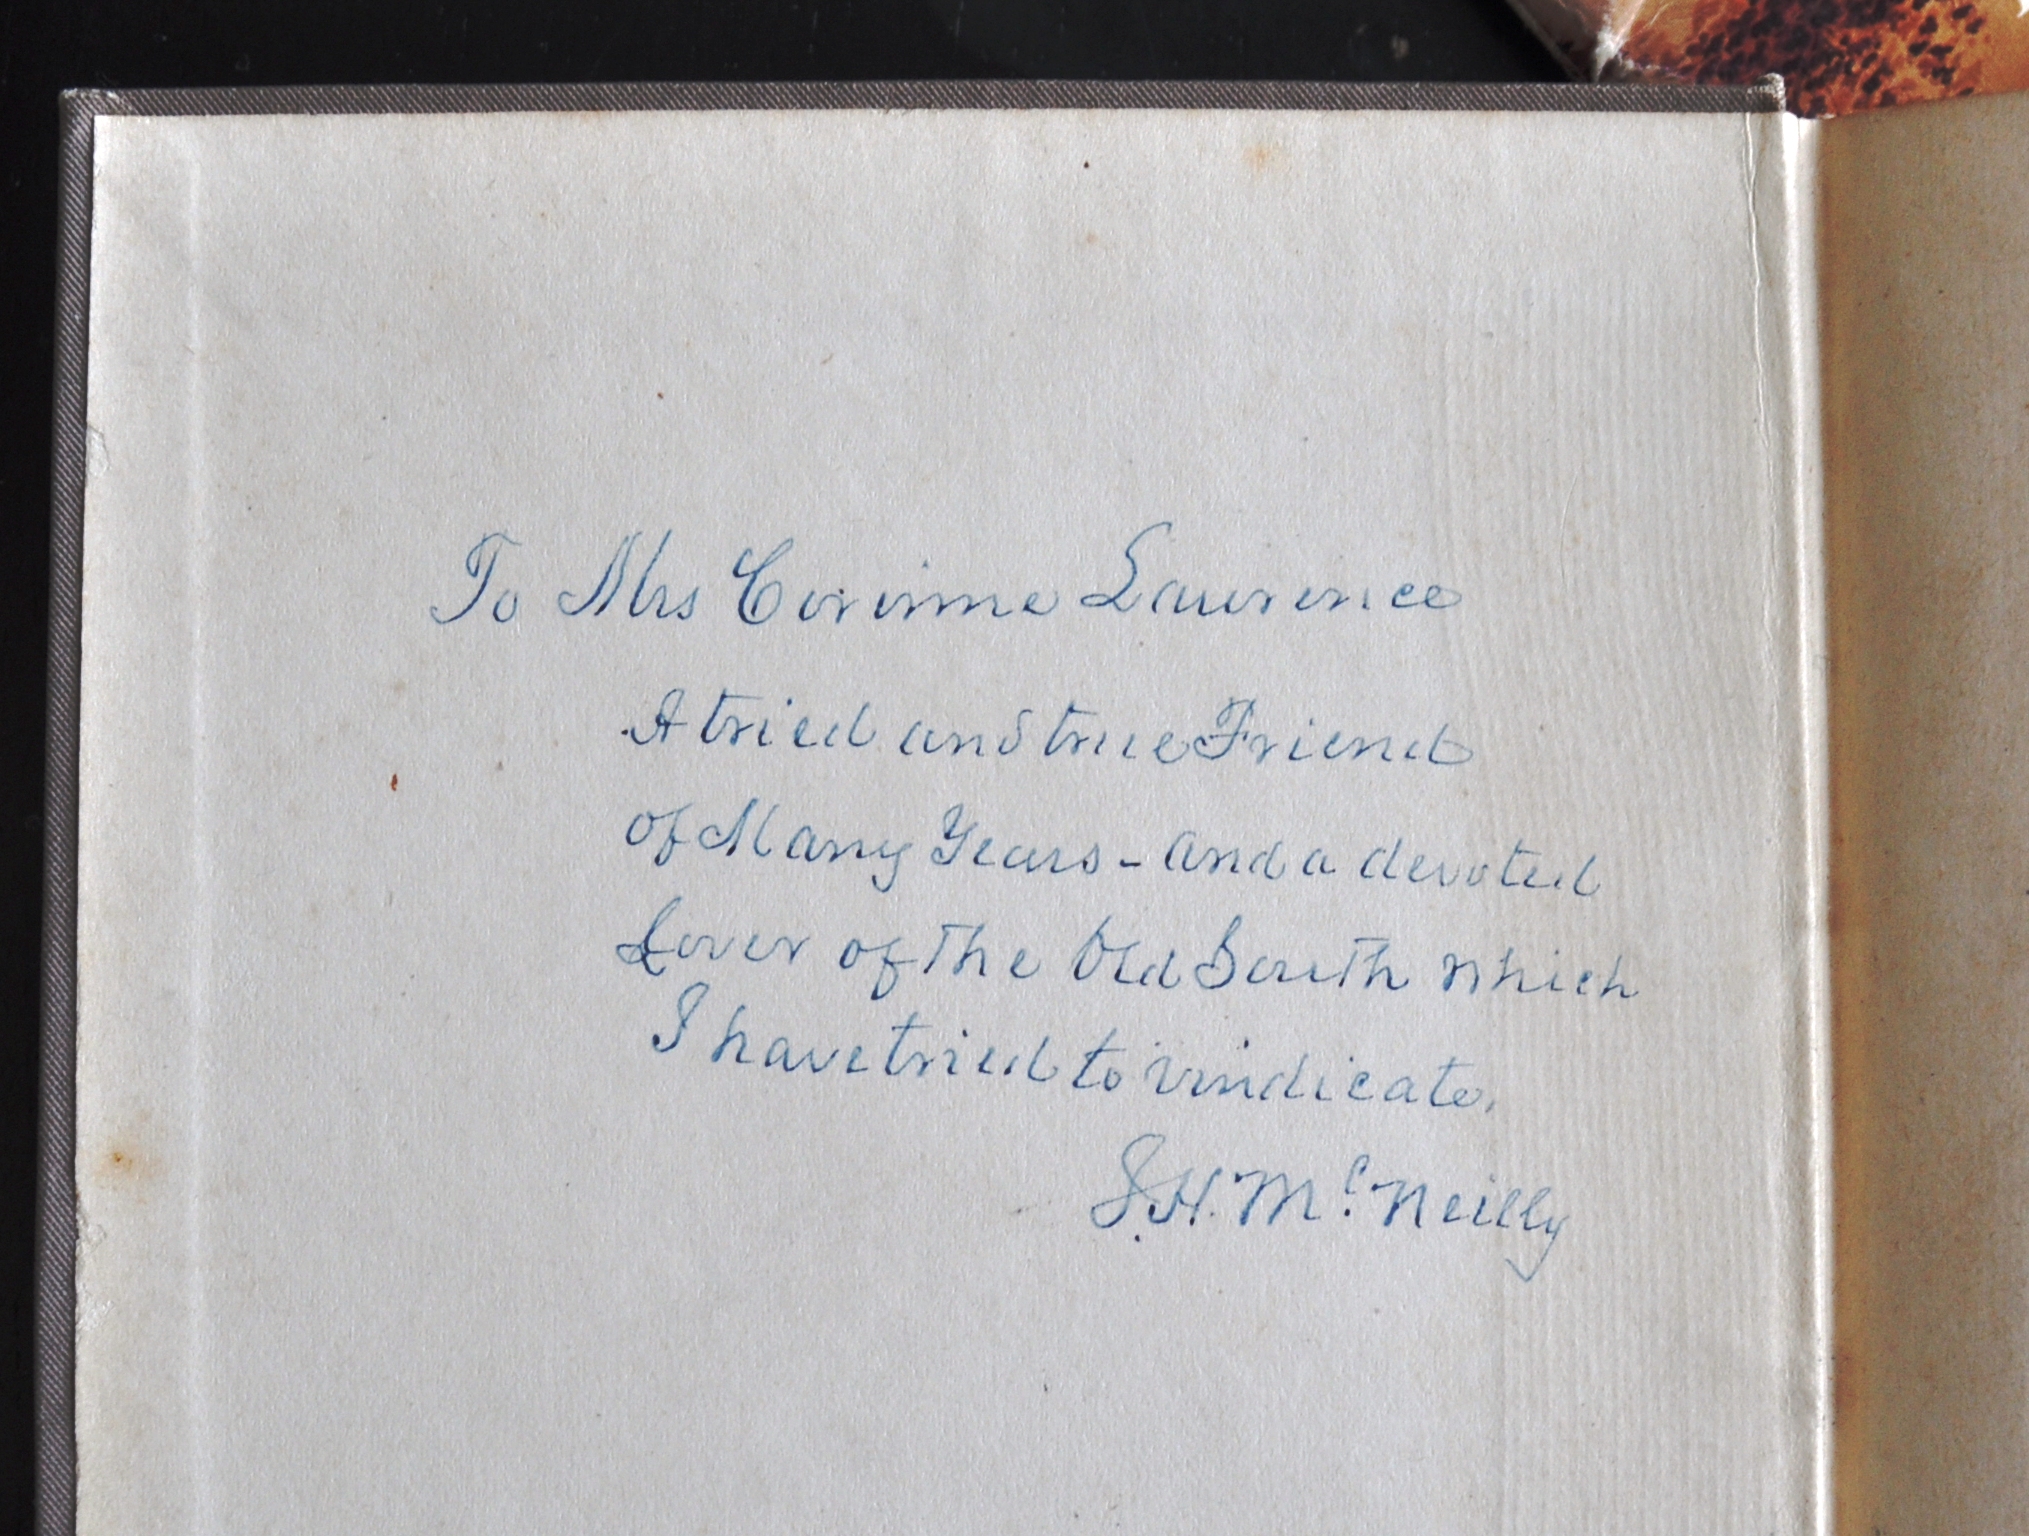 To Mrs Corinne Lawrence
A tried and true Friend
of Many Years - and a devoted
Lover of the Old South which
I have tried to vindicate.
J.H. McNeilly